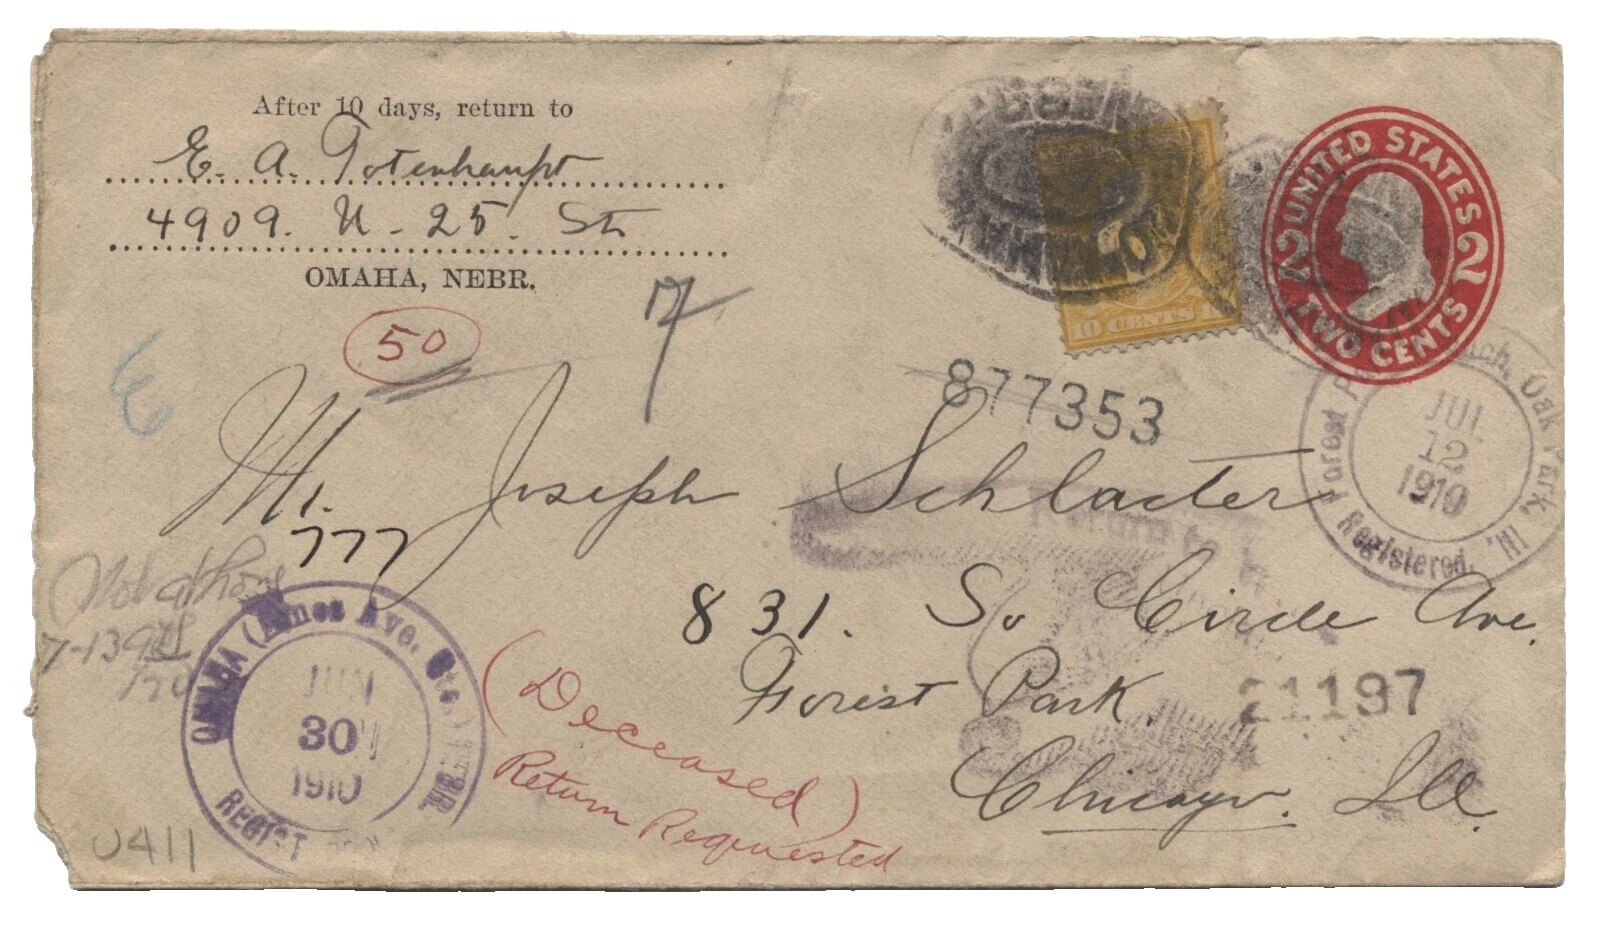 After 10 days, return to
E. A. Totenhaupt
4909. N - 25. St
OMAHA, NEBR.
UNITED STATES
2 2
TWO CENTS
10 CENTS
OMAHA
50
877353
JUL
12
1910
Forest Oak Park, Ill.
Registered.
Mr. Joseph Schlacter
777
Return to
831. So Circle Ave.
Forest Park.
21197
Chicago. Ill.
Not at home
7-13
OMAHA (Ames Ave. Sta.) NEBR.
JUN
30
1910
(Deceased)
Return Requested
U411